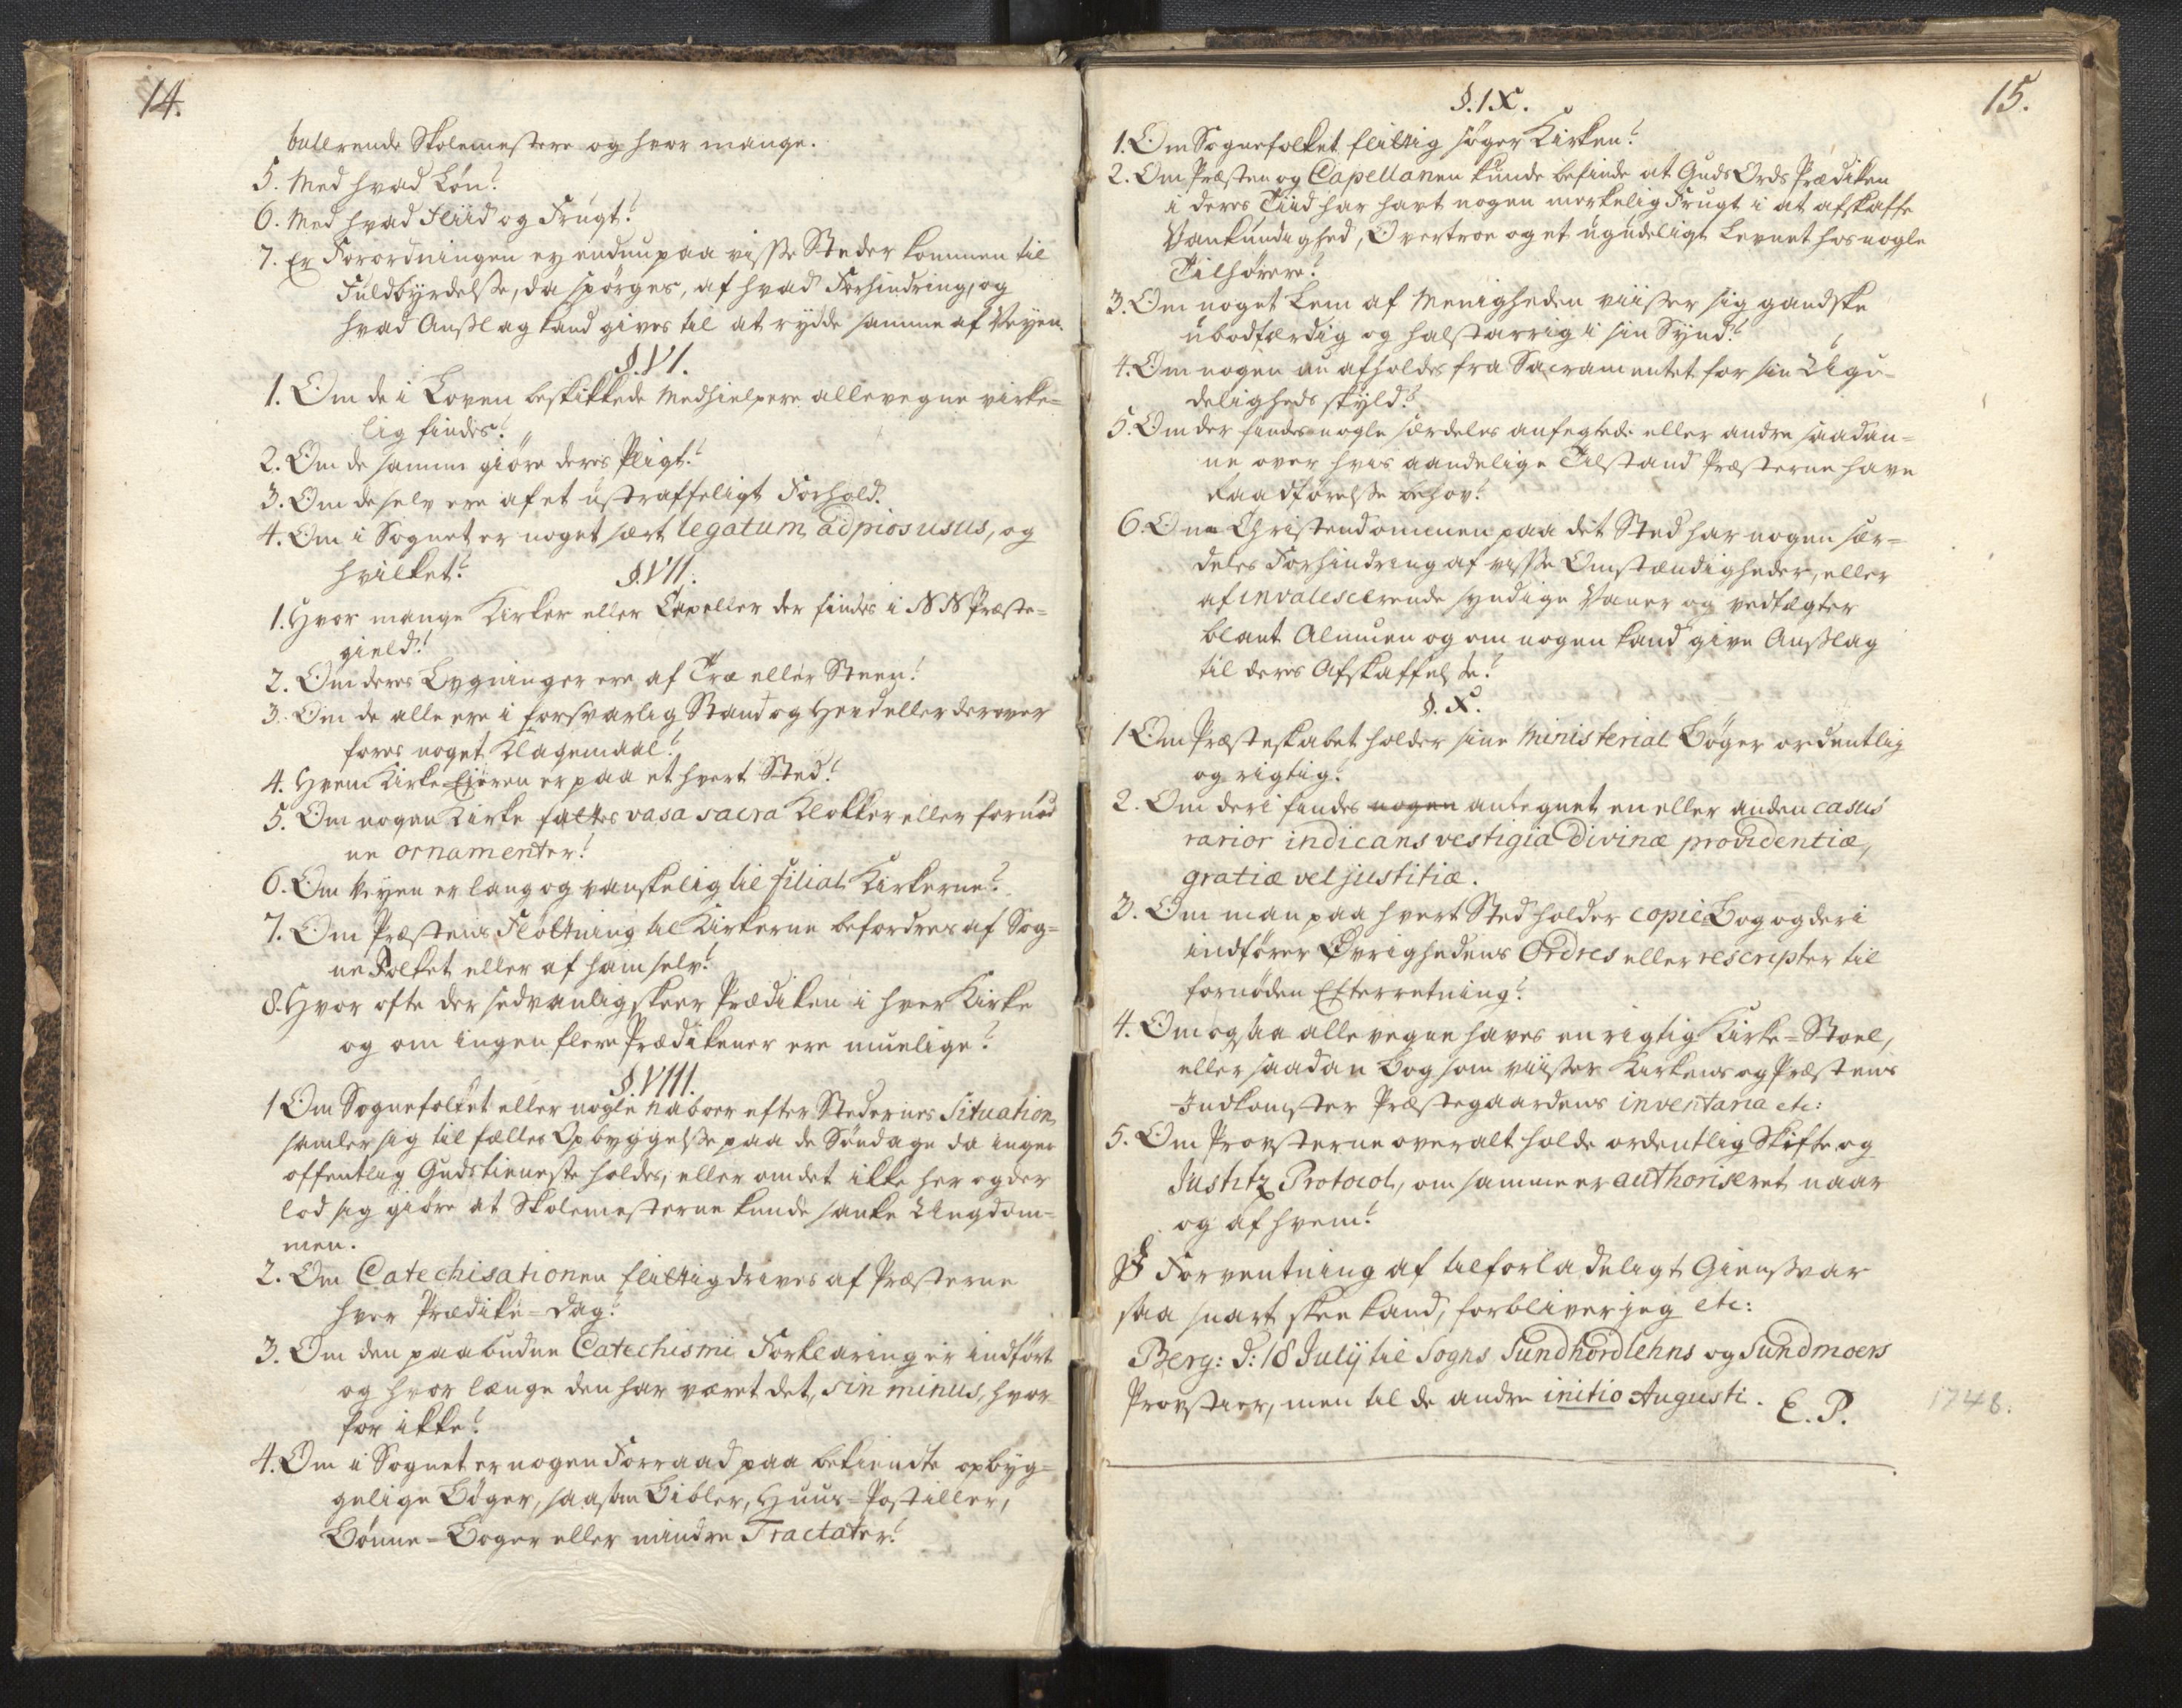 14.
bulerende Skolemestere og hvor mange.
5. Med hvad Løn?
6. Med hvad Fliid og Frugt?
7. Er Forordningen ey endnu paa visse Steder kommen til
Fuldbyrdelse, da spørges, af hvad Forhindring, og
hvad Anslag kand gives til at rydde samme af Veyen.
§. VI.
1. Om de i Loven beskikkede Medhielpere allevegne virke=
lig findes?
2. Om de samme giøre deres Pligt?
3. Om de selv ere af et ustraffeligt Forhold?
4. Om i Sognet er noget sært legatum ad pios usus, og
hvilket?
§. VII.
1. Hvor mange Kirker eller Capeller der findes i N N Præste=
gield?
2. Om deres Bygninger ere af Træ eller Steen?
3. Om de alle ere i forsvarlig Stand og Hevd eller derover
føres noget Klagemaal?
4. Hvem Kirke Ejeren er paa et hvert Sted?
5. Om nogen Kirke fattes vasa sacra Klokker eller fornød
ne ornamenter?
6. Om Veyen er lang og vanskelig til filial Kirkerne?
7. Om Præstens Fløttning til Kirkerne befordres af Sog=
ne Folket eller af ham selv?
8. Hvor ofte der sedvanlig skeer Prædiken i hver Kirke
og om ingen flere Prædikener ere muelige?
§. VIII.
1 Om Sognefolket eller nogle naboer efter Stedernes Situation
samler sig til fælles Opbyggelse paa de Søndage da ingen
offentlig Gudstieneste holdes, eller om det ikke her og der
lod sig giøre at Skolemesterne kunde sanke Ungdom=
men.
2. Om Catechisationen flittig drives af Præsterne
hver Prædike=Dag?
3. Om den paabudne Catechismi Forklaring er indført
og hvor længe den har været det, sin minus, hvor
for ikke?
4. Om i Sognet er nogen Forraad paa bekiendte opbyg=
gelige Bøger, saasom Bibler, Huus=Postiller,
Bønne=Bøger eller mindre Tractater?
15.
§. IX.
1. Om Sognefolket flittig søger Kirken?
2. Om Præsten og Capellanen kunde befinde at Guds Ords Prædiken
i deres Tiid har havt nogen merkelig Frugt i at afskaffe
Vankundighed, Overtroe og et ugudeligt Levnet hos nogle
Tilhørere?
3. Om noget Lem af Menigheden viiser sig gandske
ubodfærdig og halstarrig i sin Synd?
4. Om nogen nu afholdes fra Sacramentet for sin Ugu=
deligheds skyld?
5. Om der findes nogle særdeles anfegtede eller andre saadan=
ne over hvis aandelige Tilstand Præsterne have
Raadførelse behov?
6. Om Christendommen paa det Sted har nogen sær=
deles Forhindring af visse Omstændigheder, eller
af invalescerende syndige Vaner og vedtægter
blant Almuen og om nogen kand give Anslag
til deres Afskaffelse?
§. X.
1 Om Præsteskabet holder sine Ministerial Bøger ordentlig
og rigtig?
2. Om deri findes nogen antegnet en eller anden casus
rarior indicans vestigia Divinæ providentiæ,
gratiæ vel justitiæ.
3. Om man paa hvert Sted holder copie Bog og deri
indfører Øvrighedens Ordres eller rescripter til
fornøden Efterretning?
4. Om ogsaa allevegne haves en rigtig Kirke=Stoel,
eller saadan Bog som viiser Kirkens og Præstens
Indkomster Præstegaardens inventaria etc:
5. Om Provsterne overalt holde ordentlig Skifte og
Justitz Protocol, om samme er authoriseret naar
og af hvem?
Forventning af tilforladeligt Giensvar
saa snart skee kand, forbliver jeg etc:
Berg: d: 18 Julij til Sogns Sundhordlehns og Sundmoers
Provstier, men til de andre initio Augusti. E. P.
1748.